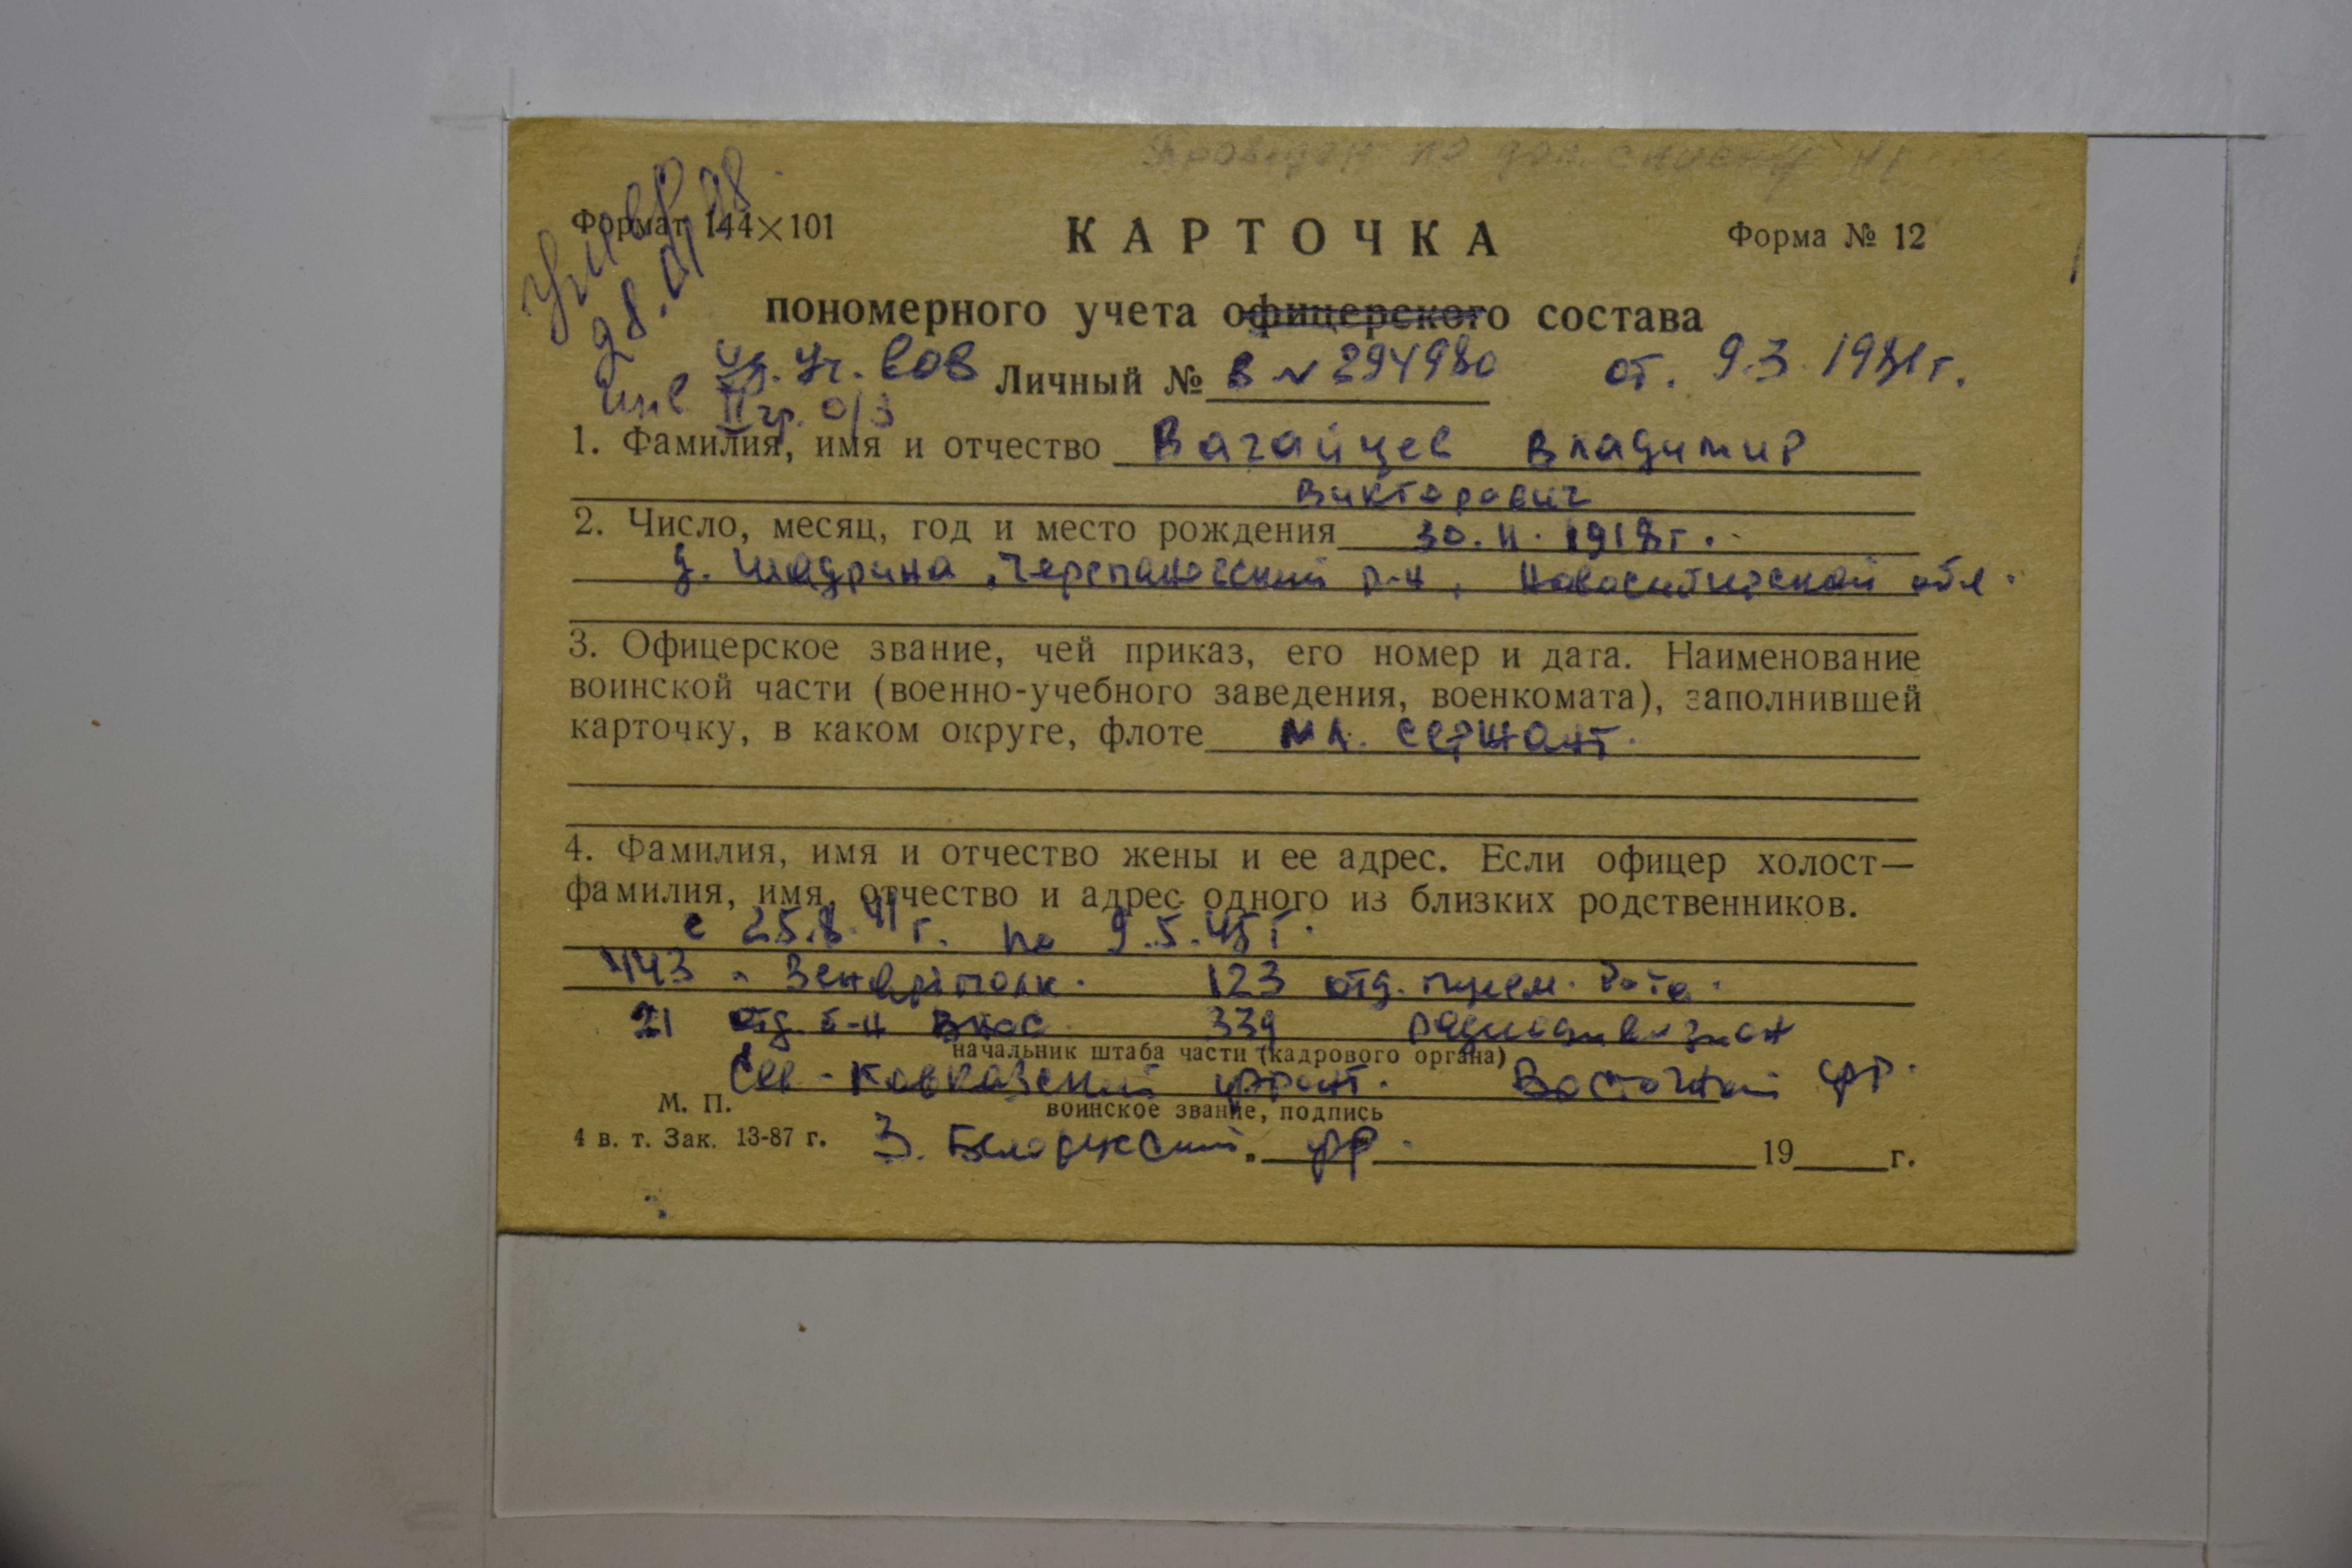 по доп. списку
Формат 144×101
КАРТОЧКА
Форма № 12
умер
28.01.98.
пономерного учета офицерского состава
уд. уч. ВОВ
Личный № В № 294980 от. 9.3.1981г.
инв II гр. о/з
1. Фамилия, имя и отчество Вагайцев Владимир
Викторович
2. Число, месяц, год и место рождения 30.11.1918г.
д. Шадрина, Черепановский р-н, Новосибирской обл.
3. Офицерское звание, чей приказ, его номер и дата. Наименование
воинской части (военно-учебного заведения, военкомата), заполнившей
карточку, в каком округе, флоте мл. сержант.
4. Фамилия, имя и отчество жены и ее адрес. Если офицер холост—
фамилия, имя, отчество и адрес одного из близких родственников.
с 25.8.41г. по 9.5.45г.
443 зенартполк. 123 отд. рота.
21 отд. б-н ВНОС 339 радиодивизион
начальник штаба части (кадрового органа)
Сев-Кавказский фронт. Восточный фр.
М. П.
воинское звание, подпись
4 в. т. Зак. 13-87 г.
3. Белорусский. фр.
19 г.